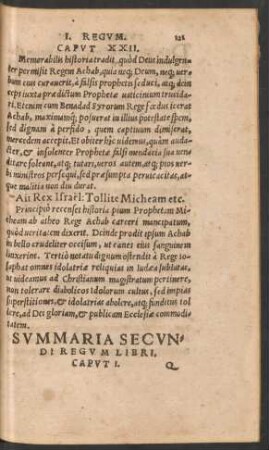 I. REGVM.
CAPVT XXII.
Memorabilis historia tradit, quòd Deus indulgen-
ter permisit Regem Achab, quia neq; Deum, neq; uer-
bum eius curauerit, à falsis prophetis seduci, atq; dein
ceps iuxta prædictum Prophetæ uaticinium trucida-
ri. Etenim cum Benadad Syrorum Rege fœdus icerat
Achab, maximamq; posuerat in illius potestate spem,
sed dignam à perfido, quem captiuum dimiserat,
mercedem accepit. Et obiter hîc uidemus, quàm auda-
cter, & insolenter Prophetæ falsi mendacia sua uen-
ditare soleant, atq; tutari, ueros autem, atq; pios uer-
bi ministros persequi, sed præsumpta peruicacitas, at-
que malitia non diu durat.
Ait Rex Israël: Tollite Micheam etc.
Principiò recenset historia pium Prophetam Mi-
cheam ab atheo Rege Achab carceri mancipatum,
quòd ueritatem dixerit. Deinde prodit ipsum Achab
in bello crudeliter occisum, ut canes eius sanguinem
linxerint. Tertiò notatu dignum ostendit à Rege Io-
saphat omnes idolatriæ reliquias in Iudæa sublatas,
ut uideamus ad Christianum magistratum pertinere,
non tolerare diabolicos Idolorum cultus, sed impias
superstitiones, & idolatrias abolere, atq; funditus tol
lere, ad Dei gloriam, & publicam Ecclesiæ commodi-
tatem.
SVMMARIA SECVN-
DI REGVM LIBRI,
CAPVT I.
Q